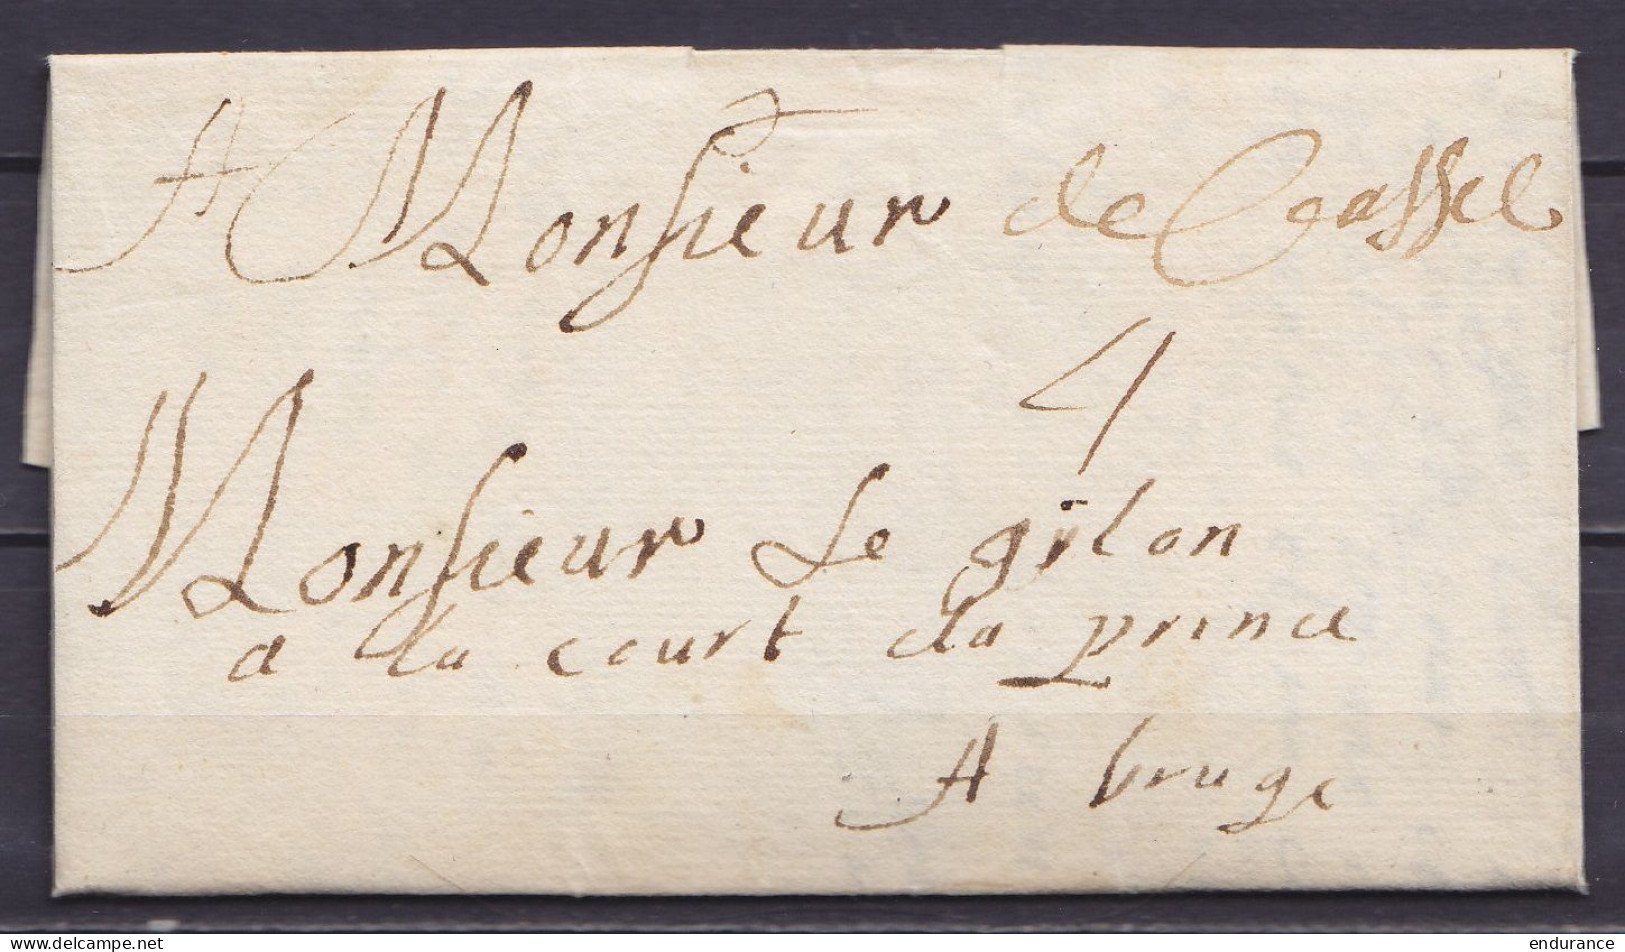 A Monsieur de Cassel
4
Monsieur Le gilon
a la court du prince
A bruge
delcampe.net
endurance